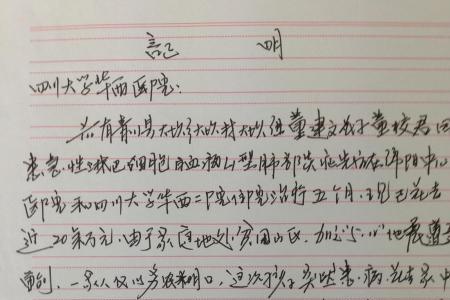 記 明
四川大学华西医院：
兹有青川县大坝乡大坝村大坝组董建文长子董校君因
患急性淋巴细胞白血病L型肺部炎症先后在绵阳中心
医院和四川大学华西二院住院治疗五个月，现已花去
近20来万元，由于家庭地处贫困山区，加之5.12地震遭受
重创，一家人仅以务农为生，这次孩子突然患病，花去家中